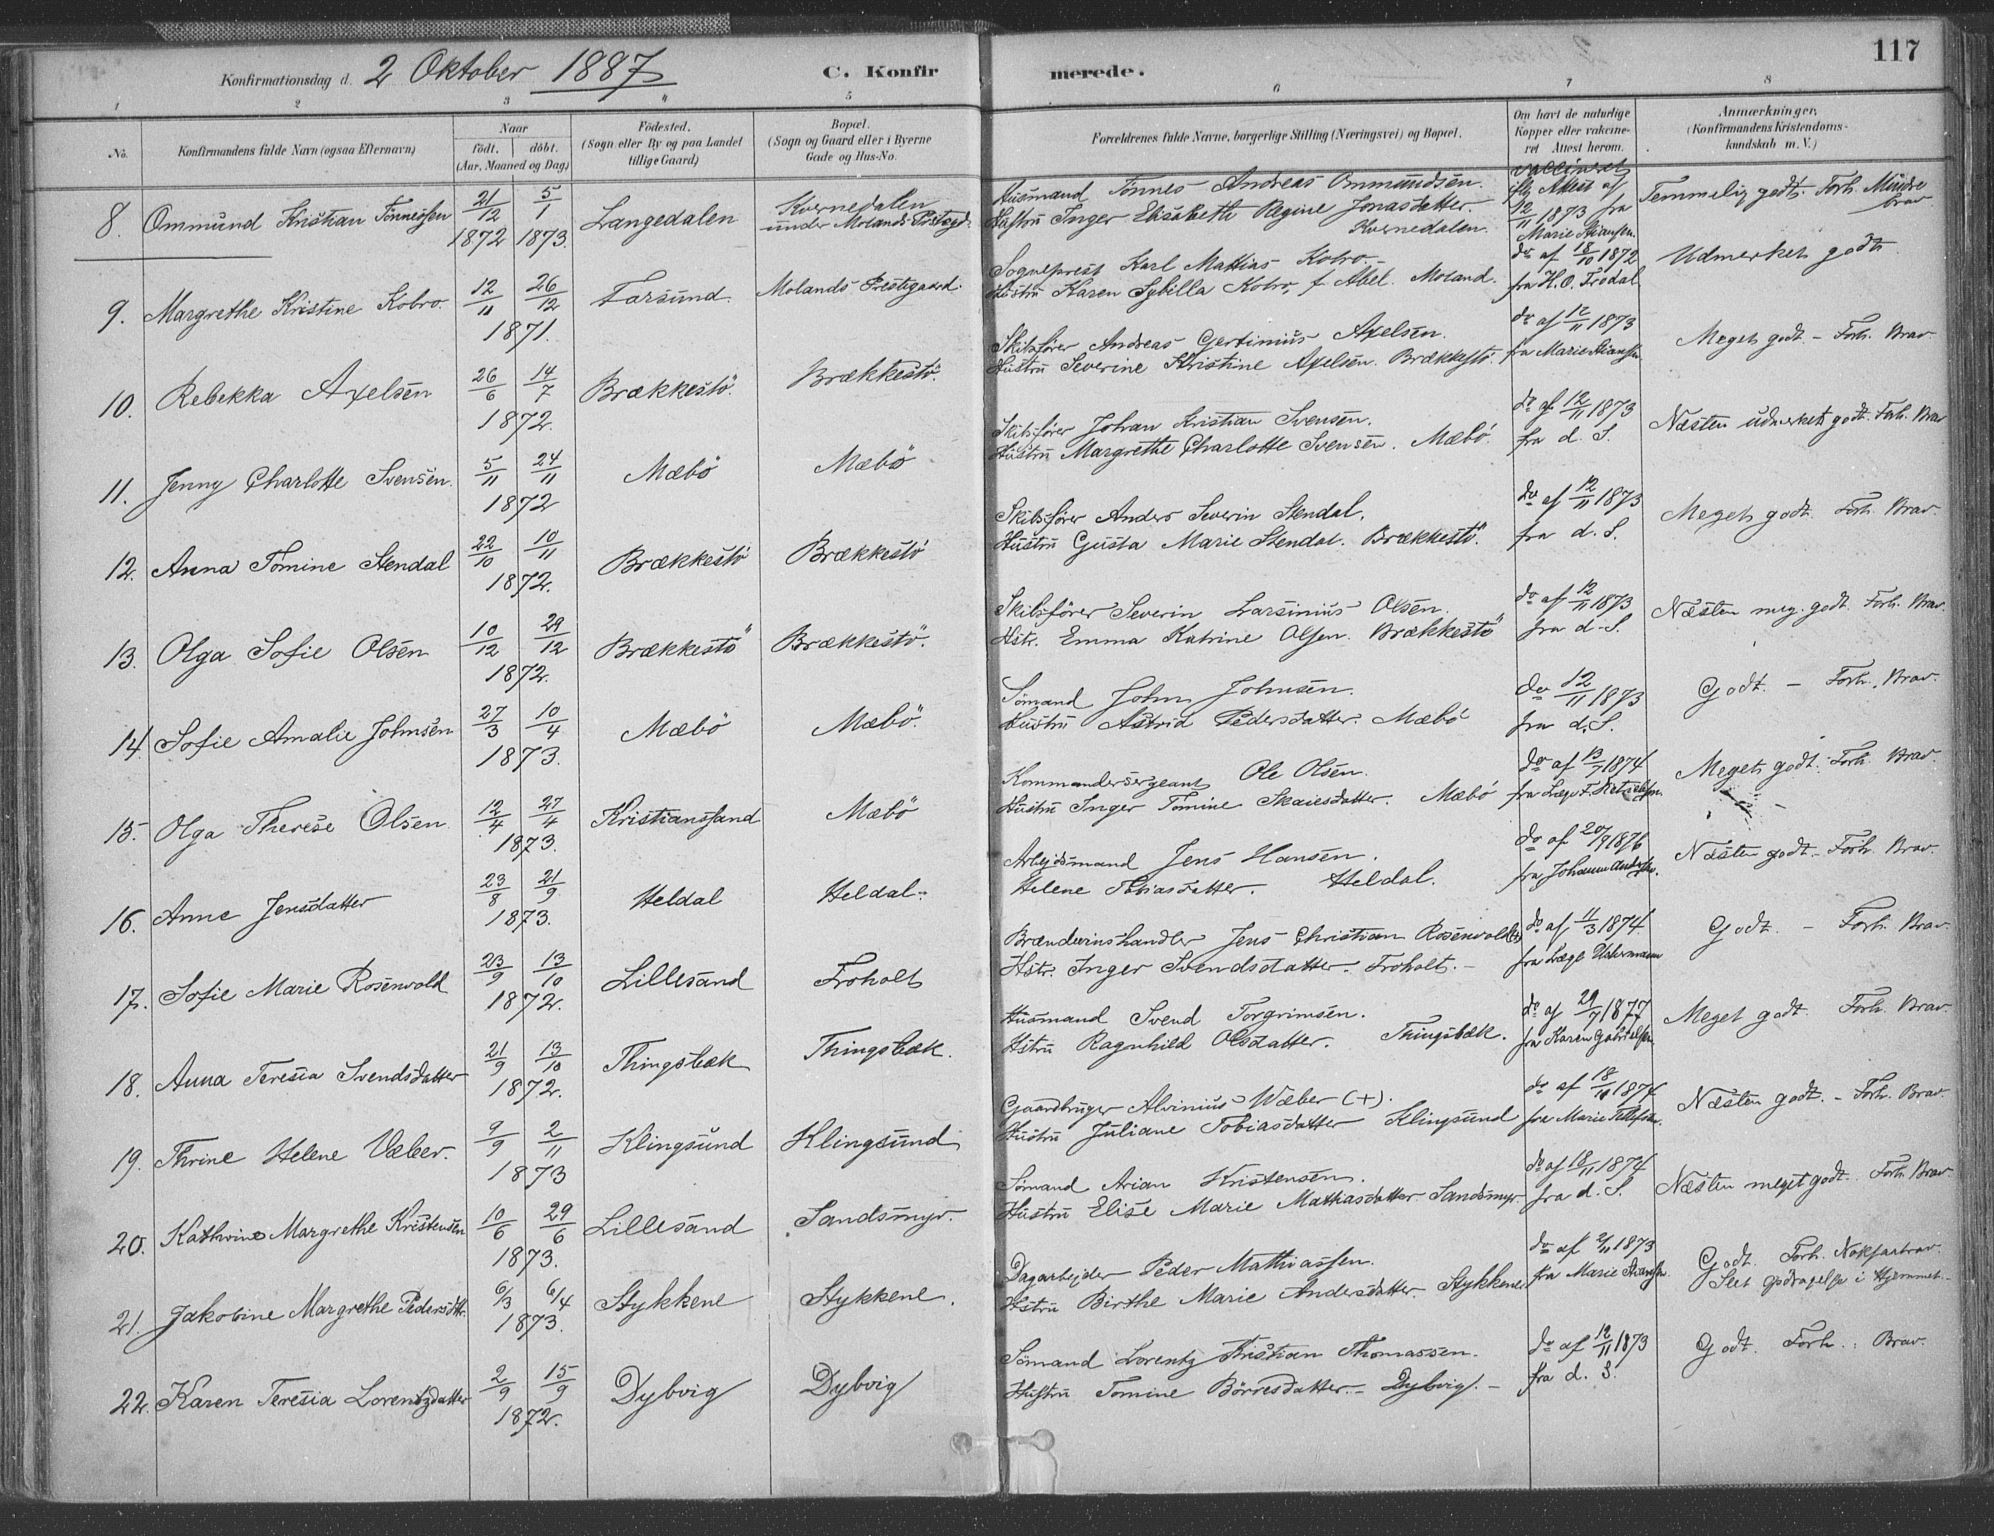 117
Konfirmationsdag d. 2 Oktober 1887
C. Konfirmerede.
1 2 3 4 5 6 7 8
No.
Konfirmandens fulde Navn (ogsaa Efternavn)
Naar
født. døbt.
(Aar, Maaned og Dag)
Fødested.
(Sogn eller By og paa Landet
tillige Gaard)
Bopæl.
(Sogn og Gaard eller i Byerne
Gade og Hus-No.
Forældrenes fulde Navne, borgerlige Stilling (Næringsvei) og Bopæl.
Om havt de naturlige
Kopper eller vakcine-
ret Attest herom.
Anmærkninger.
(Konfirmandens Kristendoms-
kundskab m. V.)
8. Ommund Kristian Tönnessen 21/12 1872 5/1 1873. Langedalen
Kvernedalen
under Molands Prstegd.
Husmand Tönnes Andreas Ommundsen.
Hustru Inger Elisabeth Regine Jonasdatter.
Kvernedalen.
vaccineret
iflg Attest af
12/11 1873 fra
Marie Stiansen.
Temmelig godt. Forh. Mindre
brav
9. Margrethe Kristine Kobro. 12/11 26/12 1871. Farsund. Molands Prestegaard.
Sogneprest Karl Mattias Kobro.
Hustru Karen Sybilla Kobro, f. Abel. Moland.
do af 18/10 1872
fra H. O. Frodal
Udmerket godt
10. Rebekka Axelsen 26/6 14/7 1872. Brækkestö. Brækkestö.
Skibsförer Andreas Gertinius Axelsen.
Hustru Severine Kristine Axelsen. Brækkestö.
do af 12/11 1873
fra Marie Stiansen
Meget godt - Forh. Brav.
11. Jenny Charlotte Svensen. 5/11 24/11 1872 Mæbö Mæbö
Skibsförer Johan Kristian Svensen.
Hustru Margrethe Charlotte Svensen. Mæbö.
do af 12/11 1873
fra d. S.
Næsten udmerket godt. Forh. Brav
12. Anna Tomine Stendal 22/10 10/11 1872. Brækkestö Brækkestö
Skibsförer Anders Severin Stendal.
Hustru Gusta Marie Stendal. Brækkestö.
do af 12/11 1873
fra d. S.
Meget godt. Forh. Brav.
13. Olga Sofie Olsen 10/12 29/12 1872. Brækkestö Brækkestö.
Skibsförer Severin Larsinius Olsen.
Hstr. Emma Katrine Olsen. Brækkestö
do af 12/11 1873
fra d. S.
Næsten meg. godt. Forh. Brav.
14. Sofie Amalie Johnsen 27/3 10/4 1873. Mæbö Mæbö.
Sömand John Johnsen.
Hustru Astrid Pedersdatter. Mæbö
do 12/11 1873
fra d. S.
Godt. - Forh. Brav.
15. Olga Therese Olsen 12/4 27/4 1873. Kristianssand Mæbö
Kommandersergeant Ole Olsen.
Hustru Inger Tomine Skaiesdatter. Mæbö
do af 13/7 1874
fra Læge F.
Meget godt. Forh. Brav.
16. Anne Jensdatter 23/8 21/9 1873. Heldal Heldal.
Arbejdsmand Jens Hansen.
Helene Tobiasdatter. Heldal.
do af 20/9 1876
fra Johanne
Næsten godt. - Forh. Brav.
17. Sofie Marie Rosenvold 23/9 13/10 1872. Lillesand Froholt
Brændevinshandler Jens Christian Rosenvold (+)
Hstr. Inger Svendsdatter. Froholt. -
do af 11/3 1874.
fra Læge Uckermann
Godt. - Forh. Brav.
18. Anna Teresia Svendsdatter 21/9 13/10 1872. Thingsbæk Thingsbæk.
Husmand Svend Torgrimsen.
Hstru Ragnhild Olsdatter. Thingsbæk.
do af 29/7 1877
fra Karen Gabrielsen
Meget godt. Forh. Brav.
19. Thrine Helene Væber. 9/9 2/11 1873 Klingsund Klingsund
Gaardbruger Alvinius Wæber (+).
Hustru Juliane Tobiasdatter Klingsund
do af 18/11 1874
fra Marie Tellefsen.
Næsten godt. - Forh. Brav.
20. Kathrine Margrethe Kristensen 10/6 29/6 1873. Lillesand Sandsmyr.
Sömand Arian Kristensen.
Hustru Elise Marie Mathiasdatter Sandsmyr
do af 18/11 1874
fra d. S.
Næsten meget godt. Forh. Brav.
21. Jakobine Margrethe Pedersdtr. 6/3 6/4 1873. Stykkene Stykkene.
Dagarbejder Peder Mathiassen.
Hstru Birthe Marie Andersdatter. Stykkene
do af 2/11 1873
fra Marie Stiansen
Godt. Forh. Noksaabrav.
Slet opdragelse i Hjemmet.
22. Karen Teresia Lorentzdatter 2/9 15/9 1872. Dybvig Dybvig
Sömand Lorentz Kristian Thomassen.
Hustru Tomine Börresdatter. - Dybvig. -
do af 12/11 1873
fra d. S.
Godt. Forh. : Brav.